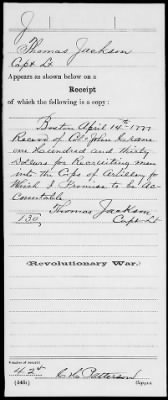 J
Thomas Jackson
Capt Lt
Appears as shown below on a
Receipt
of which the following is a copy:
Boston April 14th 1777
Recevd of Col John Crane
one Hundred and thirty
Dolers for Recruiting men
into the Cops of Artillery for
Which I Promise to be Ac-
countable
Thomas Jackson
130 Capt Lt
(Revolutionary War.)
Number of record:
42
C H Patterson
(545i) Copyist.